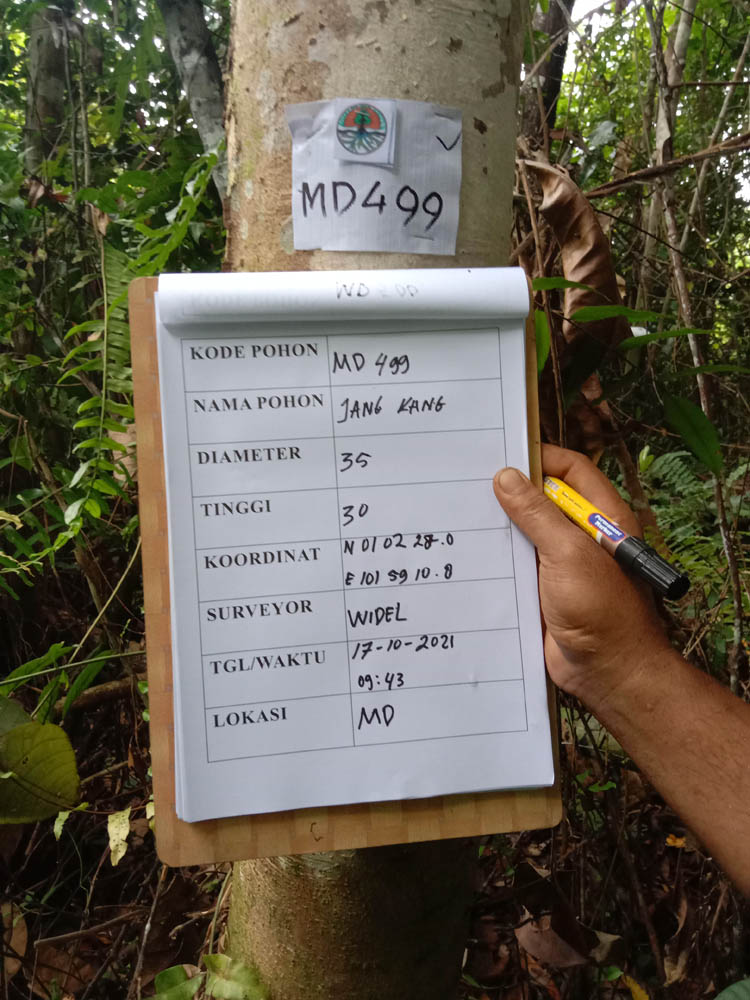 MD499
KODE POHON MD 499
NAMA POHON JANG KANG
DIAMETER 35
TINGGI 30
KOORDINAT N 01 02 28.0
E 101 59 10.8
SURVEYOR WIDEL
TGL/WAKTU 17-10-2021
09:43
LOKASI MD
Permanent
Marker